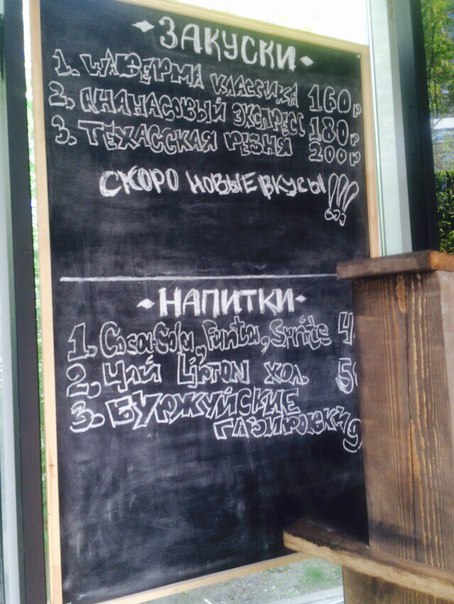 ЗАКУСКИ
1. ШАВЕРМА КЛАССИКА 160р
2. АНАНАСОВЫЙ ЭКСПРЕСС 180р
3. ТЕХАССКАЯ РЕЗНЯ 200р
СКОРО НОВЫЕ ВКУСЫ!!!
НАПИТКИ
1. Coca-Cola, Fanta, Sprite 4
2. ЧАЙ LIPTON ХОЛ. 5
3. БУРЖУЙСКИЕ
9